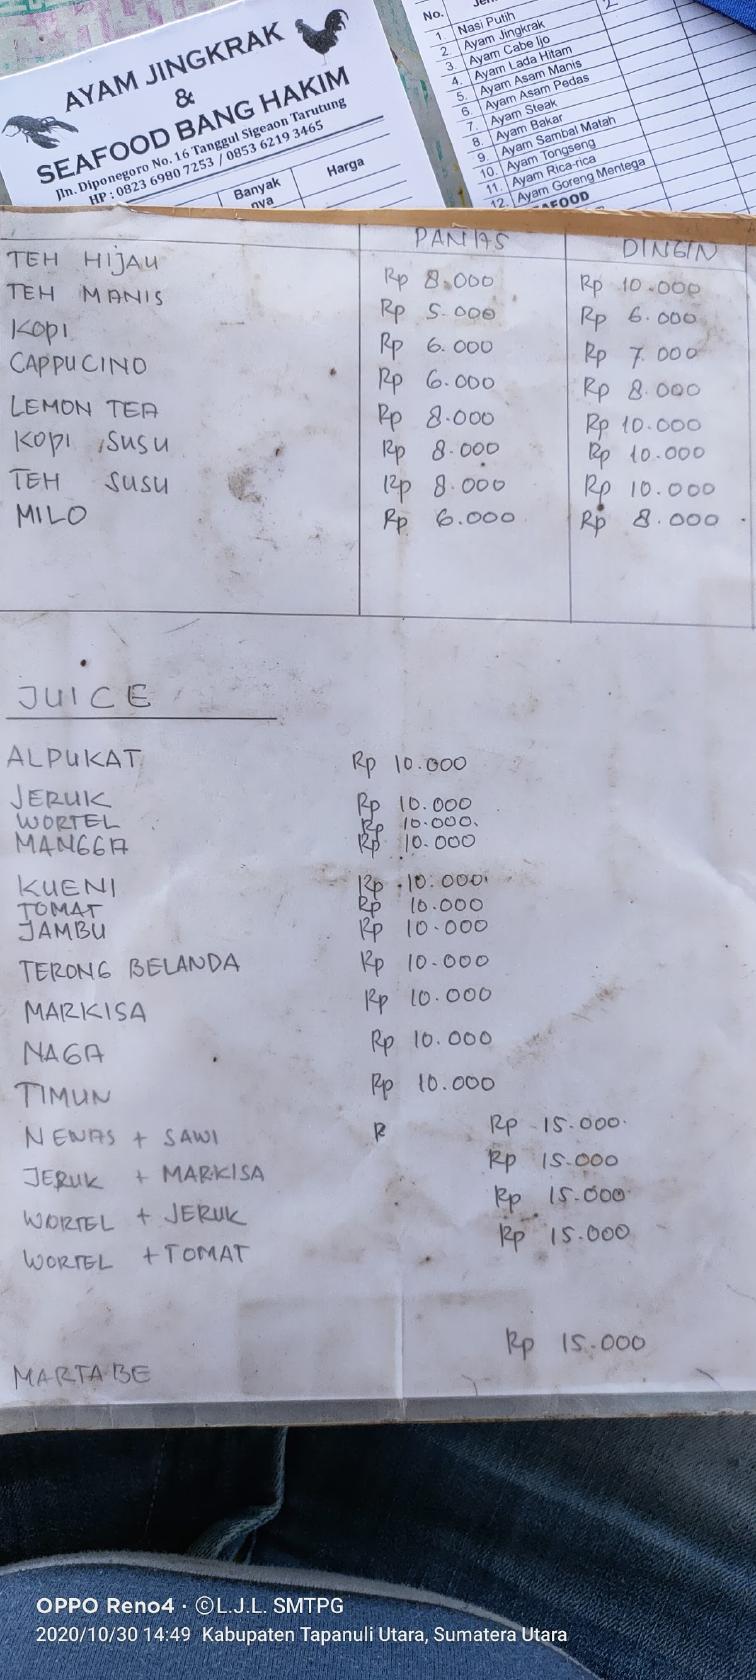 AYAM JINGKRAK
&
SEAFOOD BANG HAKIM
Jln. Diponegoro No. 16 Tanggul Sigeaon Tarutung
HP : 0823 6980 7253 / 0853 6219 3465
Banyak nya Harga
No.
1. Nasi Putih
2. Ayam Jingkrak
3. Ayam Cabe Ijo
4. Ayam Lada Hitam
5. Ayam Asam Manis
6. Ayam Asam Pedas
7. Ayam Steak
8. Ayam Bakar
9. Ayam Sambal Matah
10. Ayam Tongseng
11. Ayam Rica-rica
12. Ayam Goreng Mentega
PANAS DINGIN
TEH HIJAU Rp 8.000 Rp 10.000
TEH MANIS Rp 5.000 Rp 6.000
KOPI Rp 6.000 Rp 7.000
CAPPUCINO Rp 6.000 Rp 8.000
LEMON TEA Rp 8.000 Rp 10.000
KOPI SUSU Rp 8.000 Rp 10.000
TEH SUSU Rp 8.000 Rp 10.000
MILO Rp 6.000 Rp 8.000
JUICE
ALPUKAT Rp 10.000
JERUK Rp 10.000
WORTEL Rp 10.000
MANGGA Rp 10.000
KUENI Rp 10.000
TOMAT Rp 10.000
JAMBU Rp 10.000
TERONG BELANDA Rp 10.000
MARKISA Rp 10.000
NAGA Rp 10.000
TIMUN Rp 10.000
NENAS + SAWI R Rp 15.000
JERUK + MARKISA Rp 15.000
WORTEL + JERUK Rp 15.000
WORTEL + TOMAT Rp 15.000
MARTABE Rp 15.000
OPPO Reno4 · ©L.J.L. SMTPG
2020/10/30 14:49 Kabupaten Tapanuli Utara, Sumatera Utara